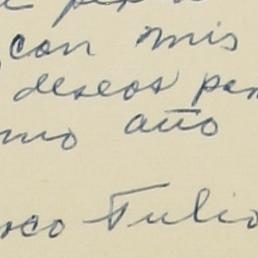 con mis
deseos par
mo año
sco Tulio